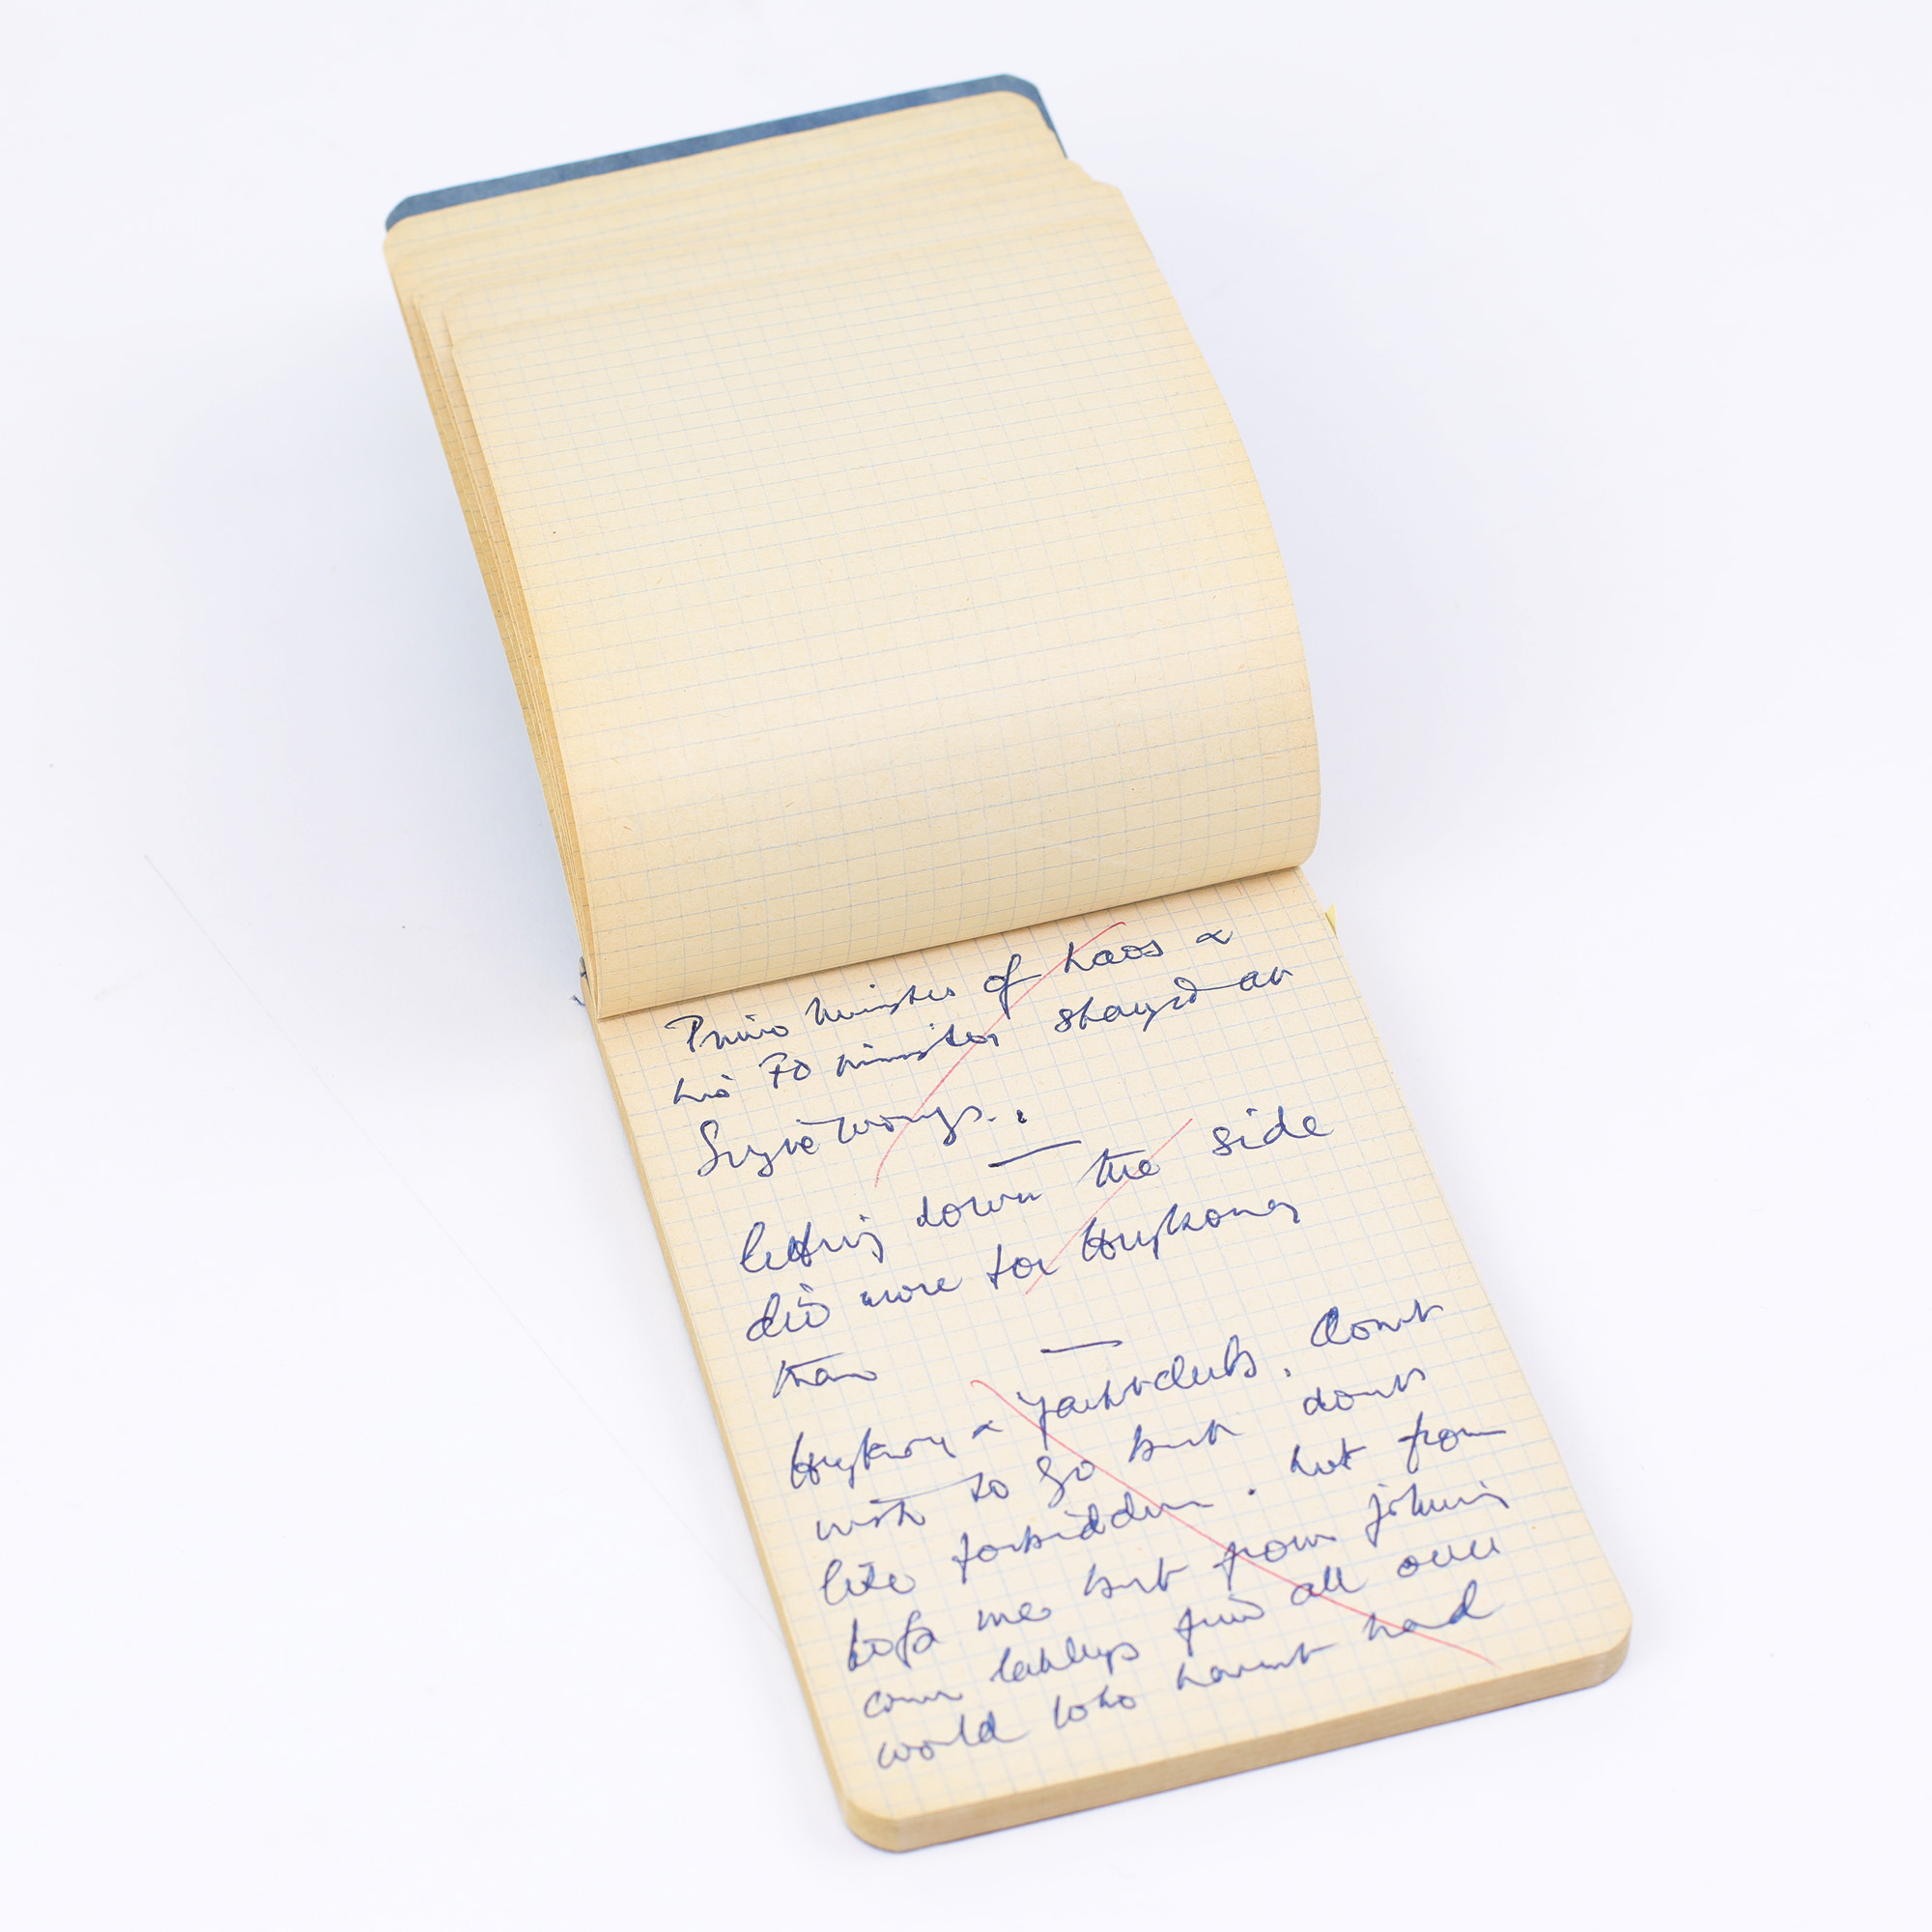 Prime Minister of Laos &
his FO minister stayed at
letting down the side
did more for Hongkong
than
Hongkong & Yachtclub. Dont
wish to go but dont
like forbidden. Not from
but from johnnies
come latelys from all over
world who havent had